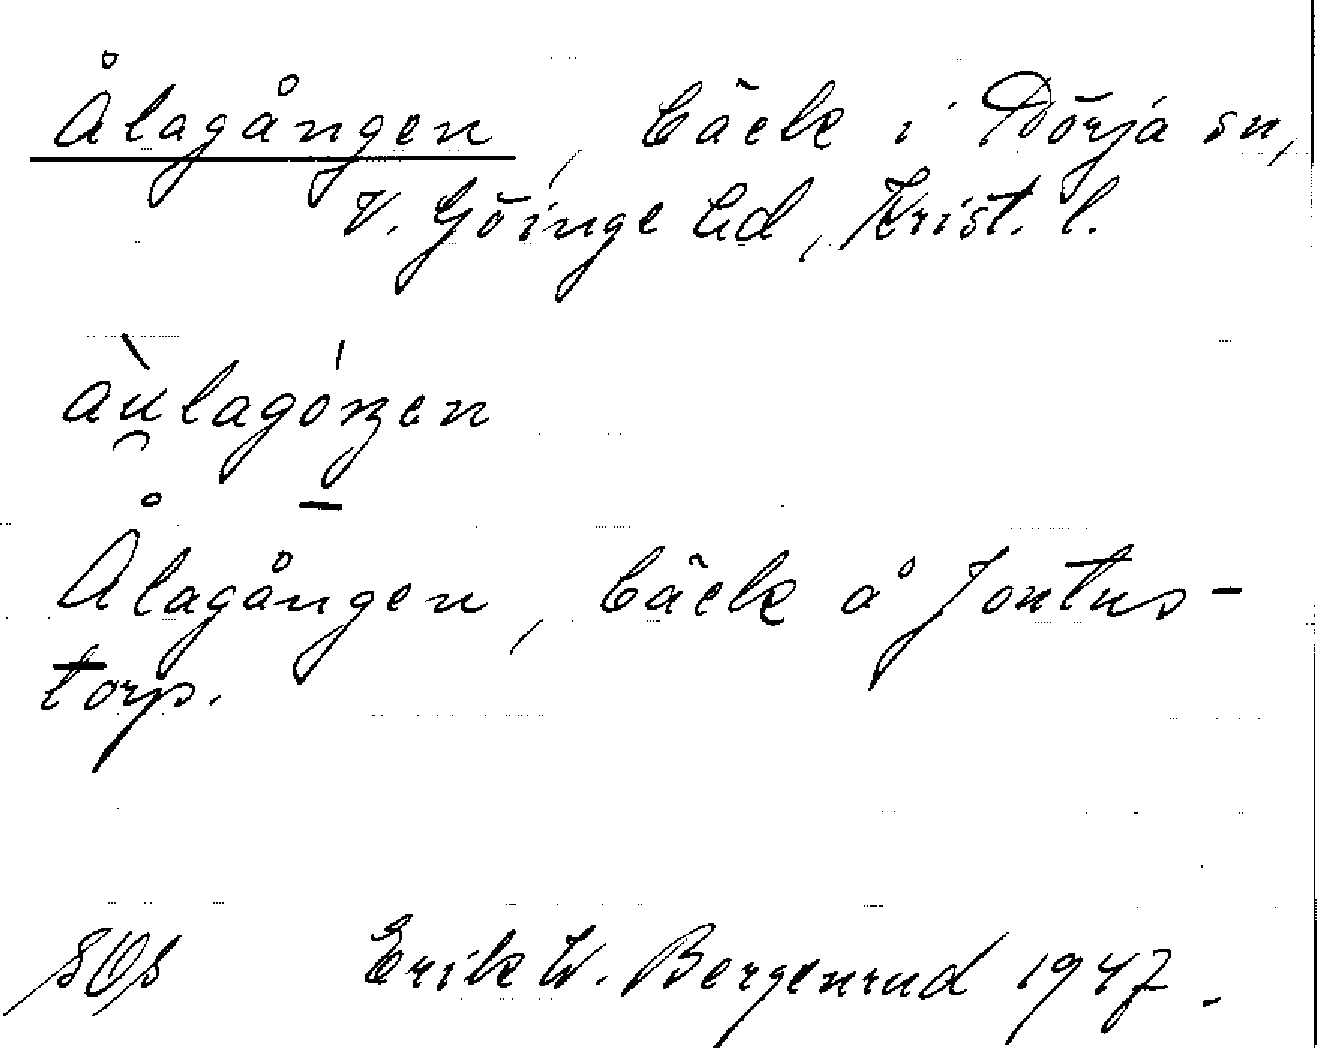 Ålagången, bäck i Dörja sn,
V. Göinge hd, Krist. l.
àu̯lagóŋen
Ålagången, bäck å Jontus-
torp.
SOs Erik W. Bergenrud 1947.